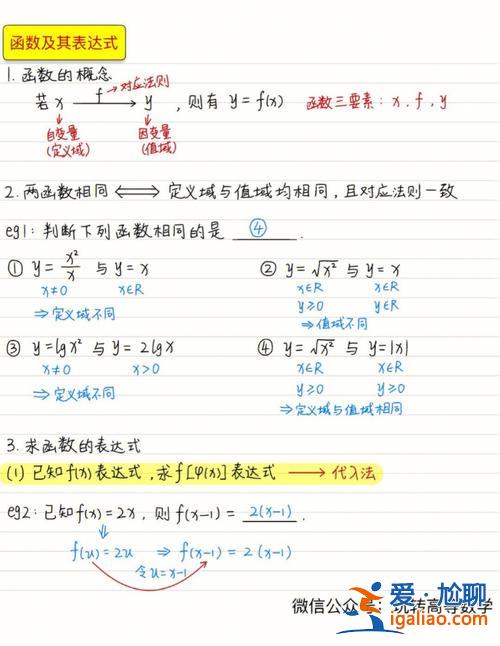 函数及其表达式
1. 函数的概念
若 x —f→ y ，则有 y = f(x) 函数三要素：x，f，y
对应法则
自变量 因变量
(定义域) (值域)
2. 两函数相同 ⟺ 定义域与值域均相同，且对应法则一致
eg1：判断下列函数相同的是 ④ .
① y = x²/x 与 y = x ② y = √x² 与 y = x
x≠0 x∈R x∈R x∈R
y≥0 y∈R
⇒ 定义域不同 ⇒ 值域不同
③ y = lgx² 与 y = 2lgx ④ y = √x² 与 y = |x|
x≠0 x>0 x∈R x∈R
y≥0 y≥0
⇒ 定义域不同 ⇒ 定义域与值域相同
3. 求函数的表达式
(1) 已知f(x)表达式，求f[φ(x)]表达式 → 代入法
eg2：已知f(x) = 2x，则 f(x-1) = 2(x-1) .
f(u) = 2u ⇒ f(x-1) = 2(x-1)
令u=x-1
微信公众号：玩转高等数学
爱·尬聊
igaliao.com